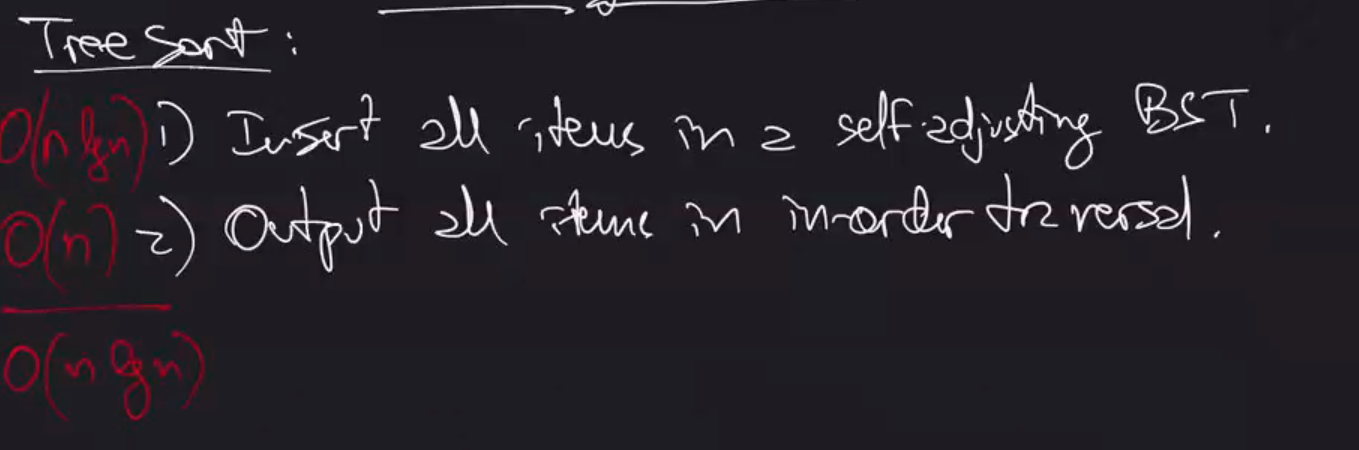 Tree Sort:
O(n lg n) 1) Insert all items in a self-adjusting BST.
O(n) 2) Output all items in in-order traversal.
O(n lg n)